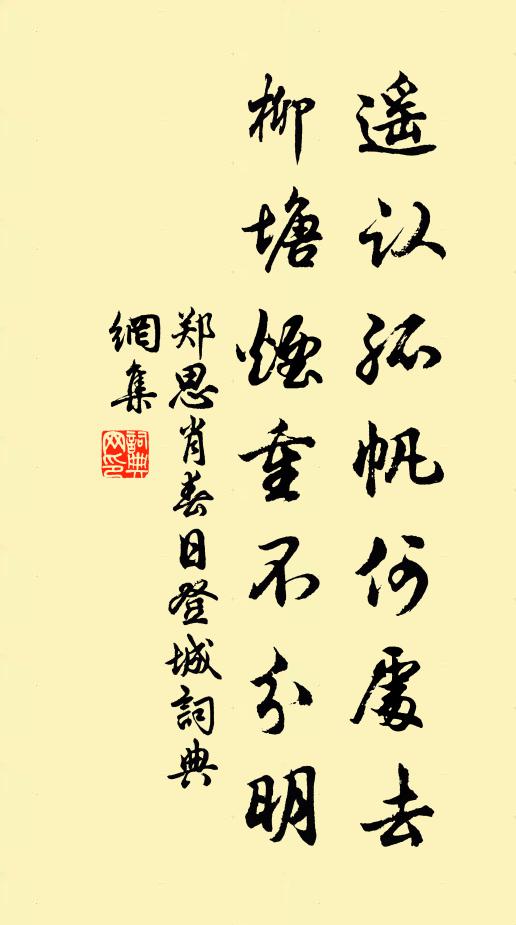 遥认孤帆何處去
柳塘煙重不分明
郑思肖春日登城詞典
網集
詞典
网印